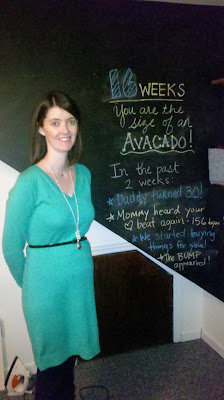 16 WEEKS
You are the
size of an
AVACADO!
In the past
2 weeks:
★ Daddy turned 30!
★ Mommy heard your
♡ beat again - 156 bpm
★ We started buying
things for you!
★ The BUMP
appeared!